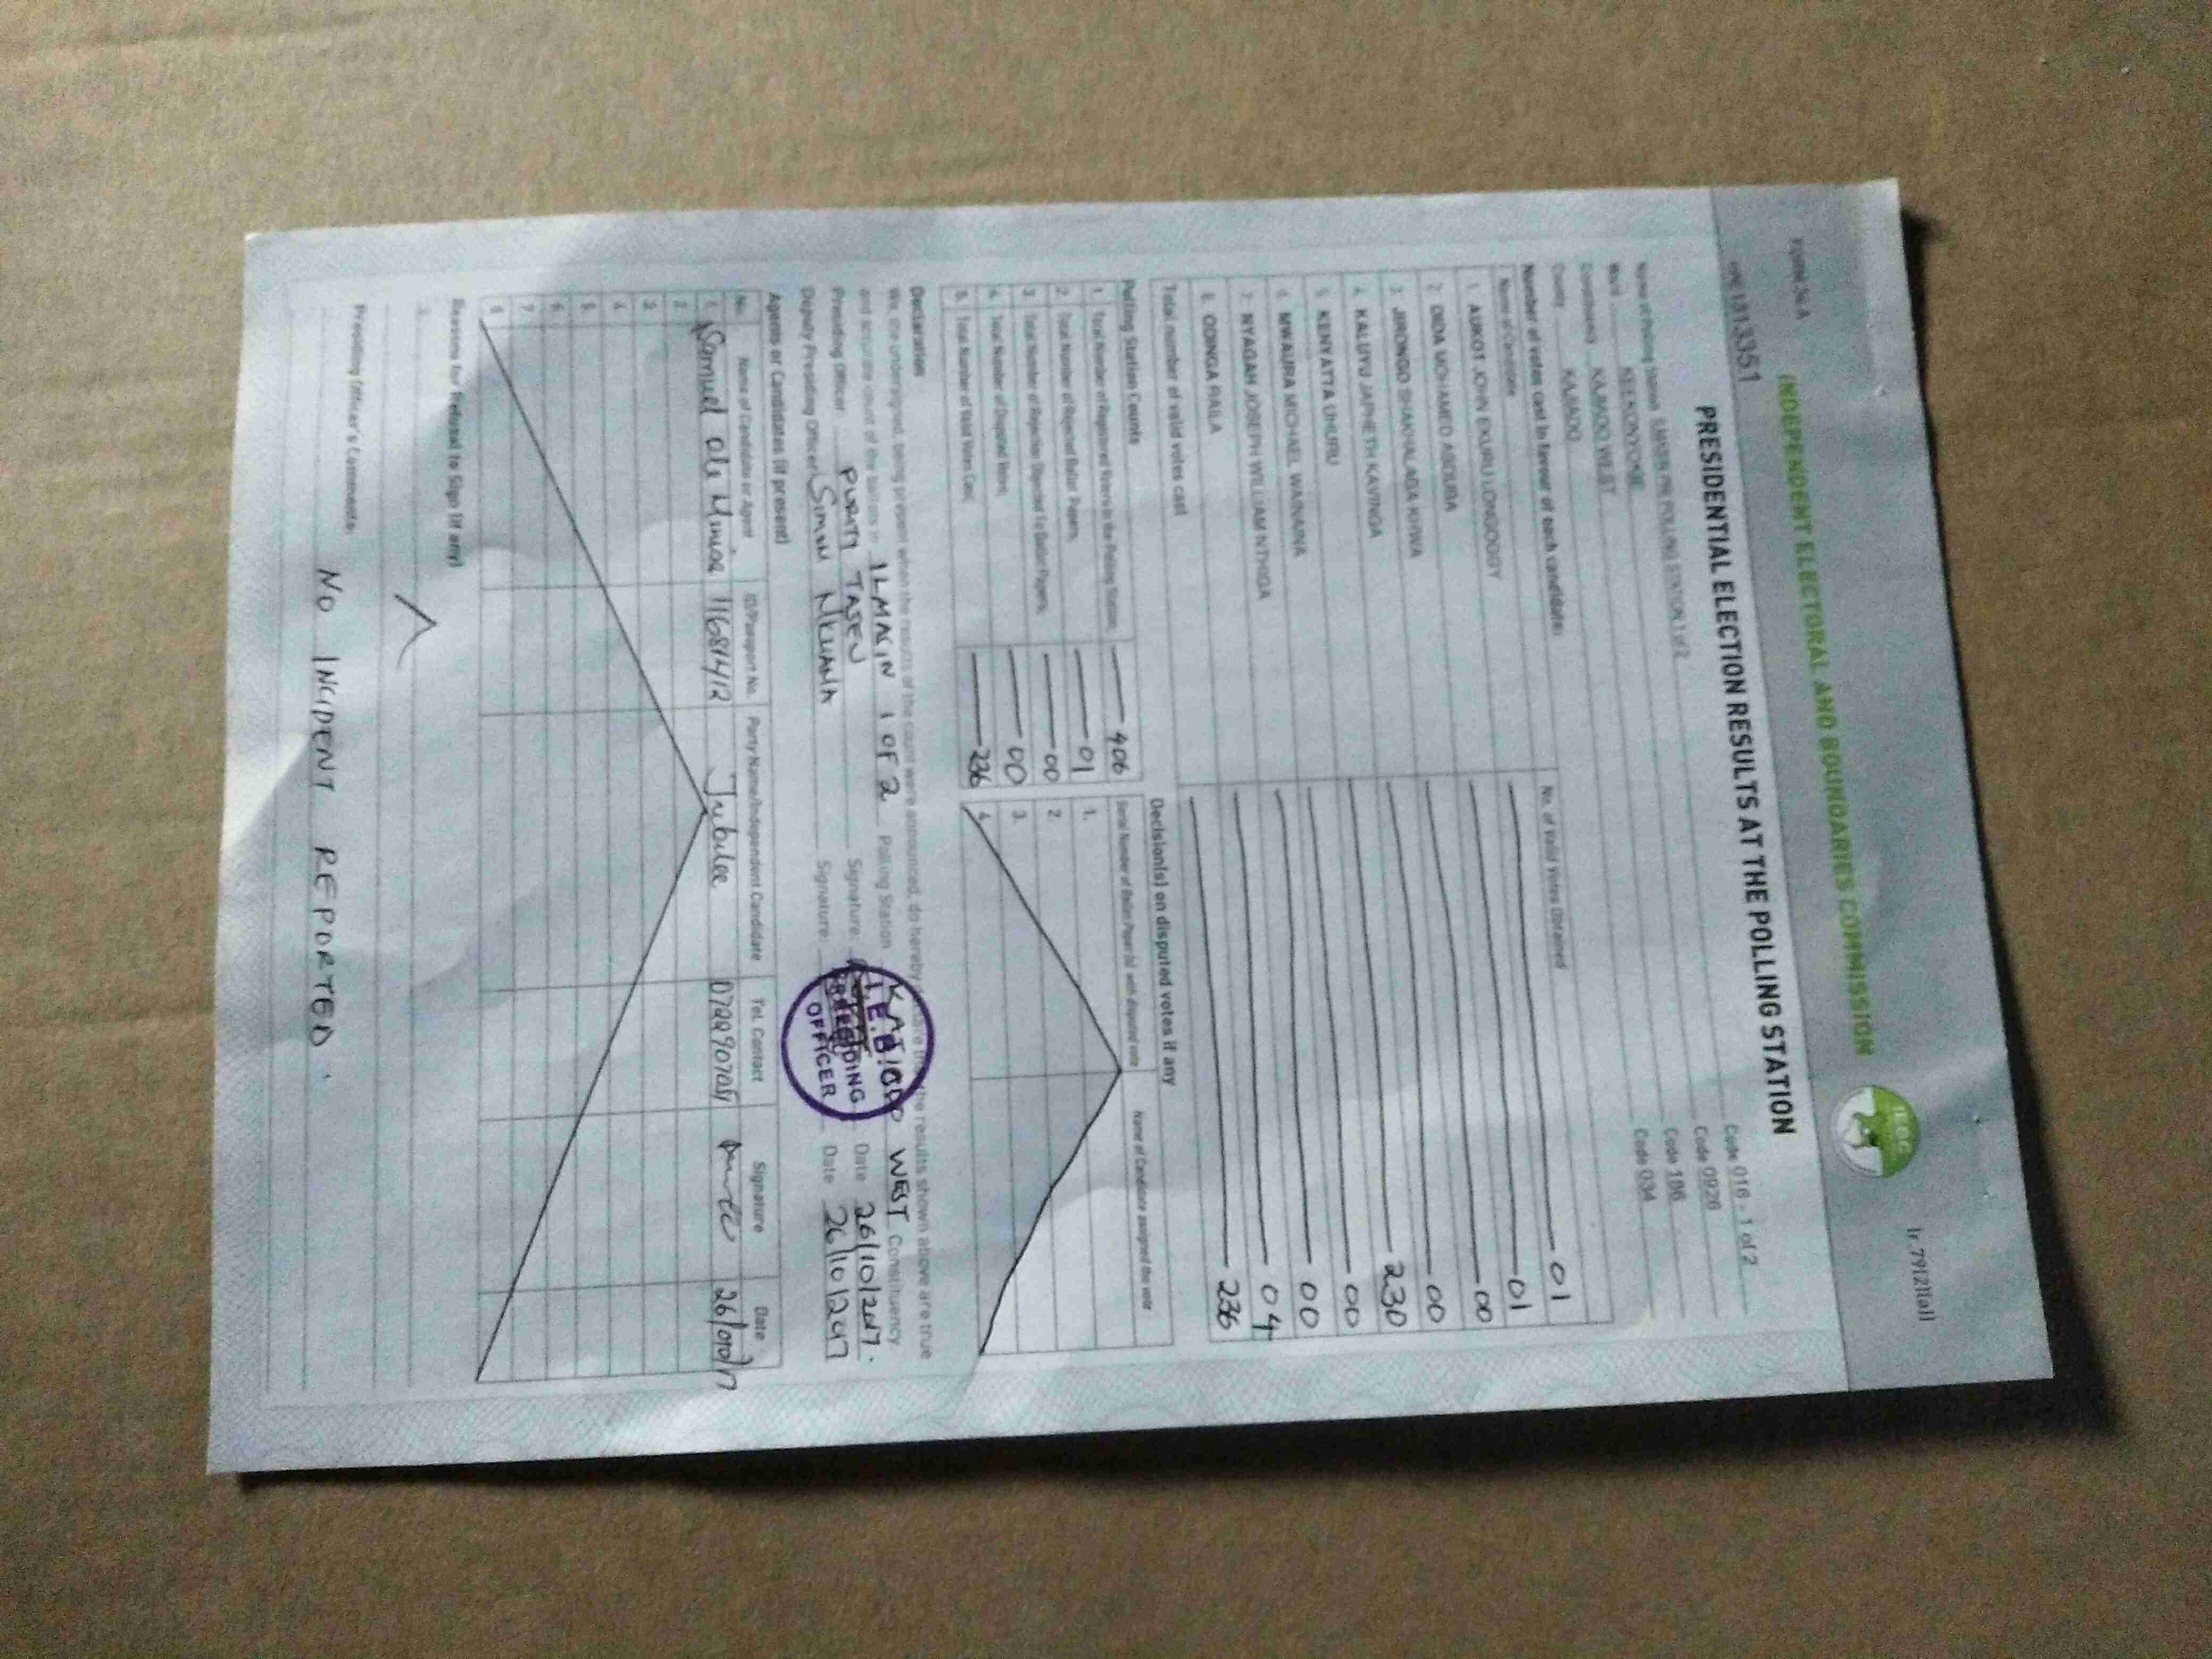 INDEPENDENT ELECTORAL AND BOUNDARIES COMMISSION
IEBC
Form 34A
(r.79(2)(a))
PRESIDENTIAL ELECTION RESULTS AT THE POLLING STATION
Name of Polling Station POLLING STATION 1 of 2 Code 016 - 1 of 2
Ward KEEKONYOKIE Code 0926
Constituency KAJIADO WEST Code 186
County KAJIADO Code 034
Number of votes cast in favour of each candidate:
Name of Candidate No. of Valid Votes Obtained
1. AUKOT JOHN EKURU LONGOGGY 01
2. DIDA MOHAMED ABDUBA 01
3. JIRONGO SHAKHALAGA KHWA 00
4. KALUYU JAPHETH KAVINGA 00
5. KENYATTA UHURU 230
6. MWAURA MICHAEL WAINAINA 00
7. NYAGAH JOSEPH WILLIAM NTHIGA 00
8. ODINGA RAILA 04
Total number of valid votes cast 236
Polling Station Counts
1. Total Number of Registered Voters in the Polling Station 406
2. Total Number of Rejected Ballot Papers 01
3. Total Number of Rejection Objected To Ballot Papers 00
4. Total Number of Disputed Votes 00
5. Total Number of Valid Votes Cast 236
Decision(s) on disputed votes if any
Serial Number of Ballot Paper(s) with disputed vote Name of Candidate assigned the vote
1.
2.
3.
4.
Declaration
We, the undersigned, being present when the results of the count were announced, do hereby the results shown above are true
and accurate count of the ballots in ILMAGIN 1 OF 2 Polling Station KAJIADO WEST Constituency
Presiding Officer PURITY TASEN Signature: Date 26/10/2017.
Deputy Presiding Officer SIMON NKUANA Signature: Date 26/10/2017
I.E.B.C
PRESIDING
OFFICER
Agents or Candidates (if present)
No. Name of Candidate or Agent ID/Passport No. Party Name/Independent Candidate Tel. Contact Signature Date
1. Samuel ole 11681412 Jubilee 26/10/17
2.
3.
4.
5.
6.
7.
8.
Reasons for Refusal to Sign (if any)
Presiding Officer's Comments:
NO INCIDENT REPORTED.